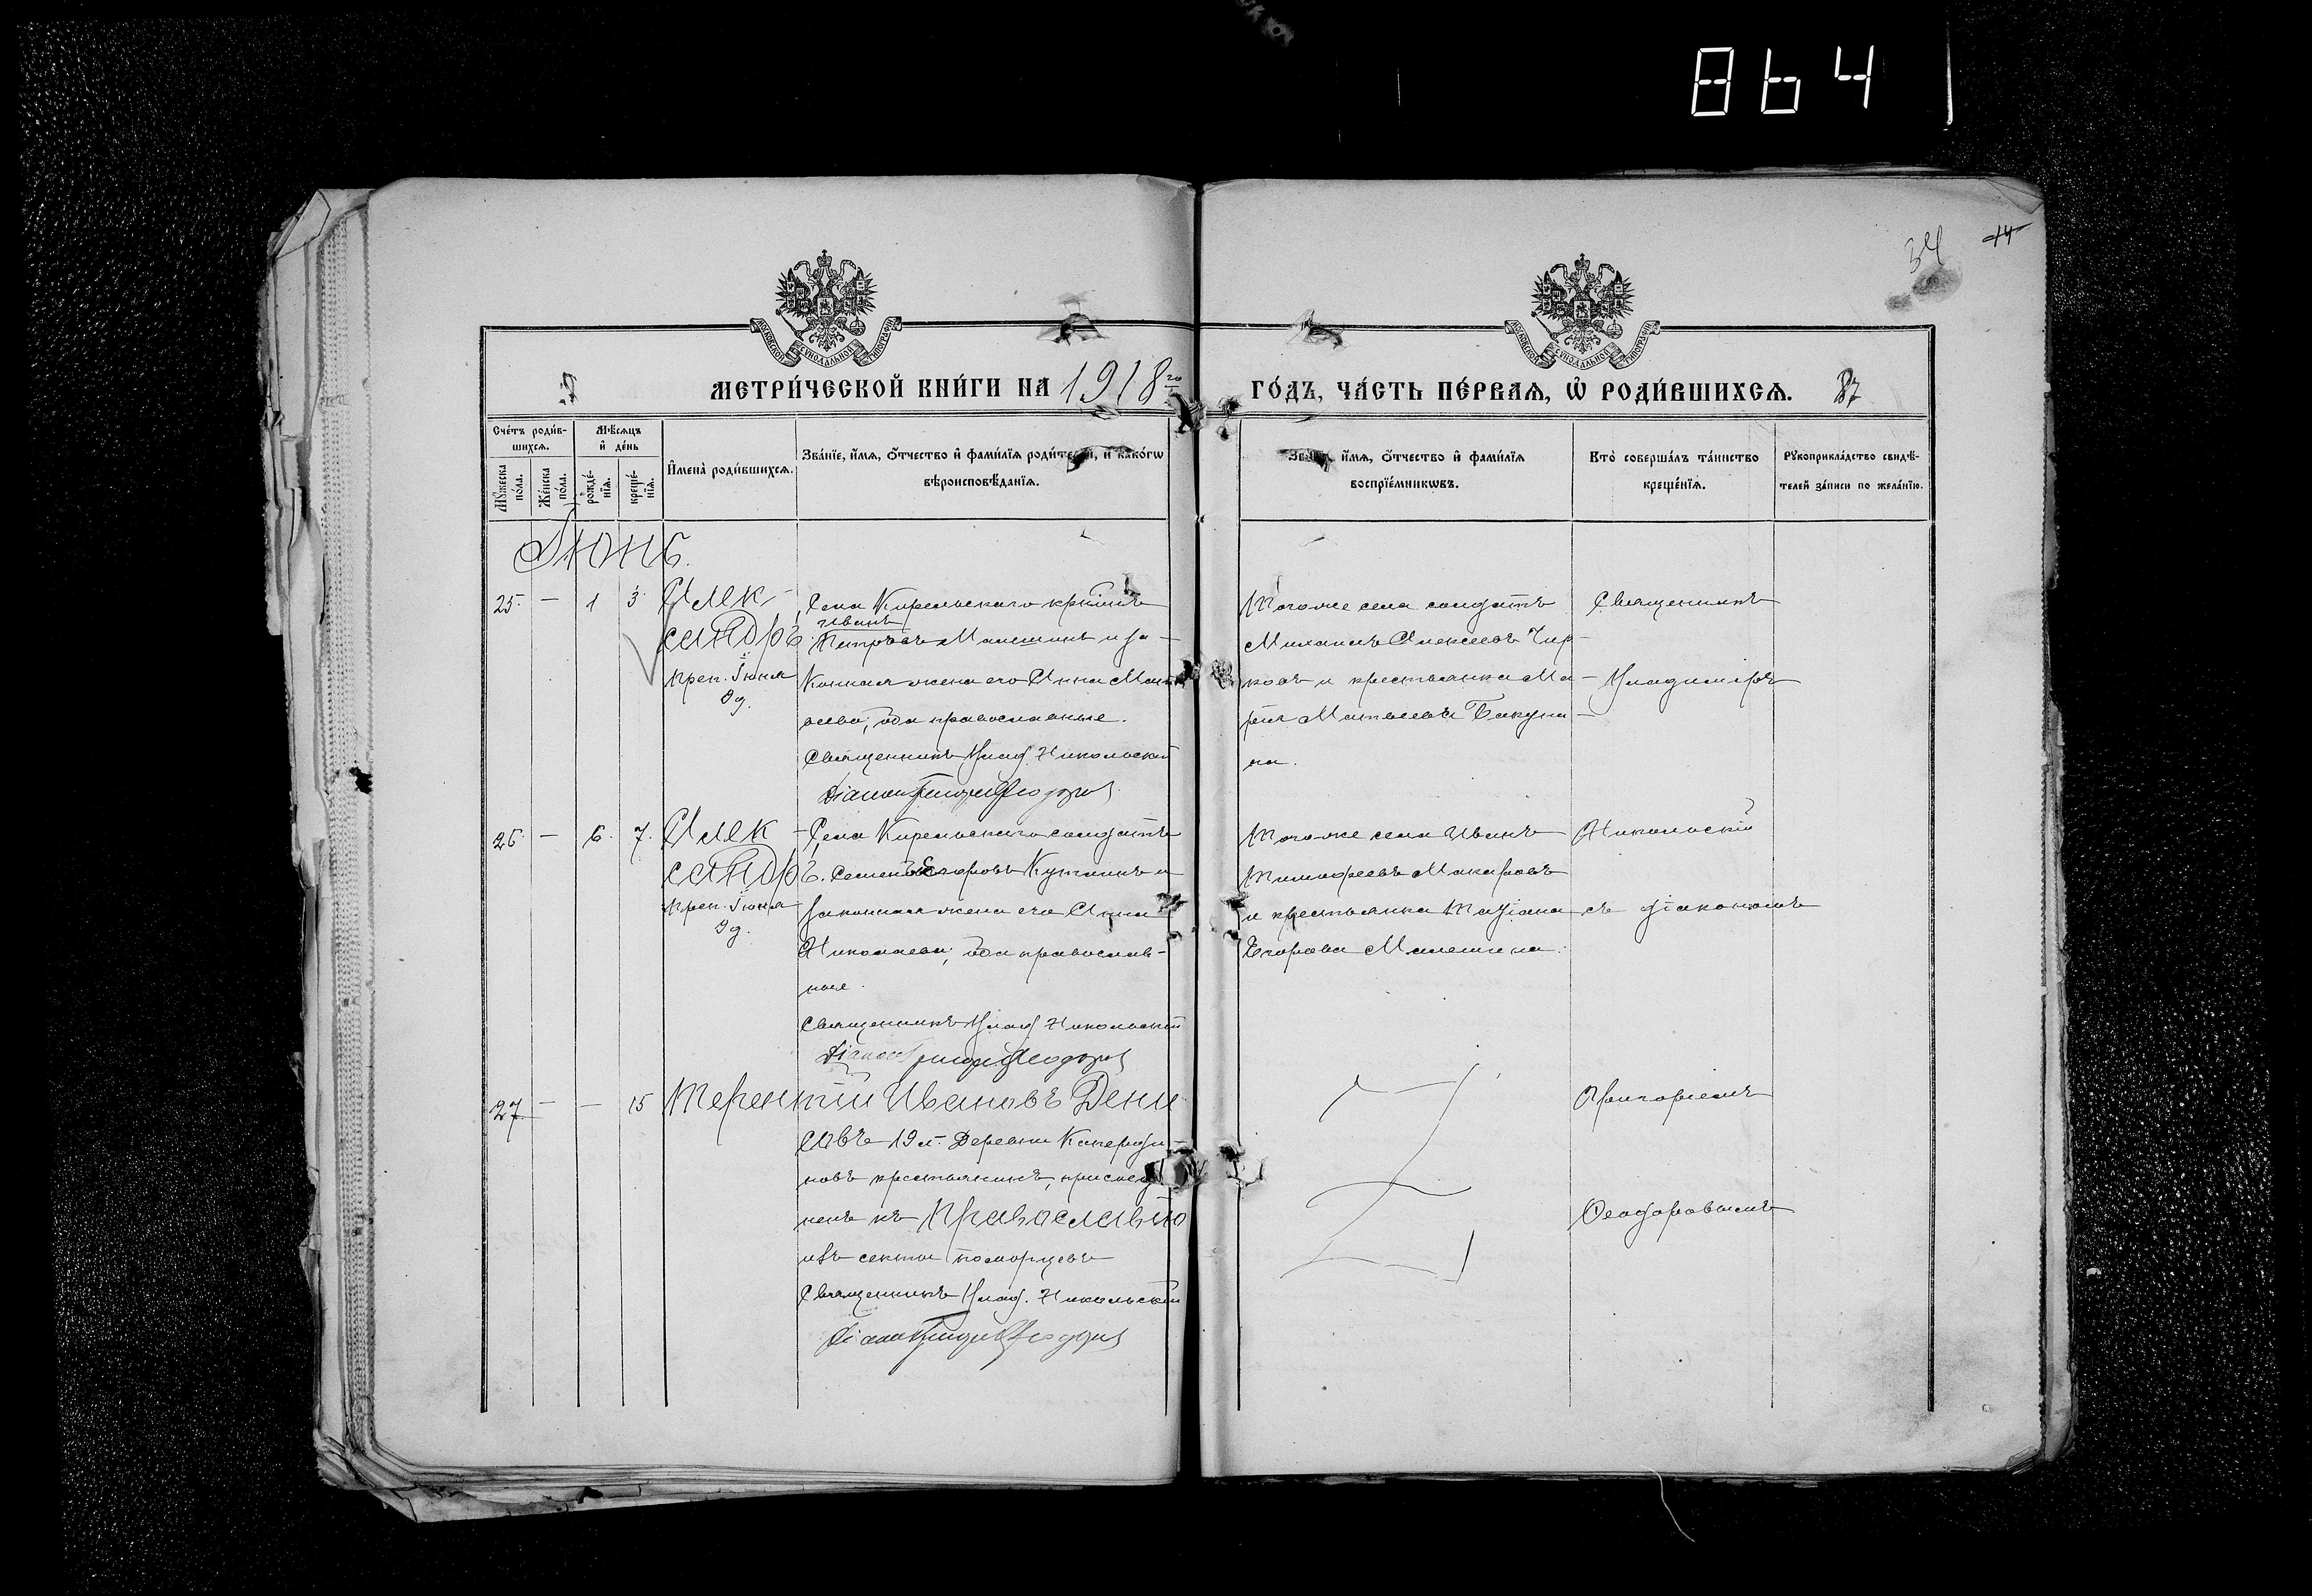 864
34
14
МОСКОВСКОЙ СѴНОДАЛЬНОЙ ТИПОГРАФІИ
МОСКОВСКОЙ СѴНОДАЛЬНОЙ ТИПОГРАФІИ
МЕТРИ́ЧЕСКОЙ КНИ́ГИ НА 1918го
ГО́ДЪ, ЧА́СТЬ ПЕ́РВАЯ, Ѡ РОДИ́ВШИХСЯ. 87
Сче́тъ роди́в-
шихся.
Мѣ́сяцъ
и҆ де́нь
Мꙋ́жеска по́ла.
Же́нска по́ла.
рожде́-
нїя.
креще́-
нїя.
И҆мена̀ роди́вшихся.
Зва́нїе, и҆́мя, о҆́тчество и҆ фами́лїя роди́телей, и҆ како́гѡ
вѣроисповѣ́данїя.
Зва́нїе, и҆́мя, о҆́тчество и҆ фами́лїя
воспрїе́мникѡвъ.
Кто̀ соверша́лъ та́инство
креще́нїя.
Рꙋкоприкла́дство свидѣ́-
телей за́писи по жела́нїю.
Іюнь.
25. — 1 3 Алек-
сандръ.
креп. Іюня
9 д.
Села Кирельскаго кр
Иванъ
Петровъ Малешинъ и за-
конная жена его Анна Мат
веева, оба православные.
Священникъ Влад. Никольскій
Діаконъ Григорій Феодоров
Того же села солдатъ
Михаилъ Алексеевъ Чир-
ковъ и крестьянка Ма-
рія Матвеева Бакуни-
на.
Священникъ
Владиміръ
26. — 6. 7. Алек-
сандръ.
креп. Іюня
9 д.
Села Кирельскаго солдатъ
Семенъ Егоровъ Кутлинъ и
законная жена его Анна
Николаева, оба православ-
ные.
Священникъ Влад. Никольскій
Діаконъ Григорій Феодоров
Того же села Иванъ
Тимофеевъ Макаровъ
и крестьянка Татіана
Егорова Малешина.
Никольскій
съ діакономъ
27. — — 15 Терентій Ивановъ Дени
совъ 19 л. Деревни Каперди-
новъ крестьянинъ, присоед
ненъ къ Православію
изъ секты поморцевъ
Священникъ Влад. Никольскій
Діаконъ Григорій Феодоров
Григоріемъ
Феодоровымъ